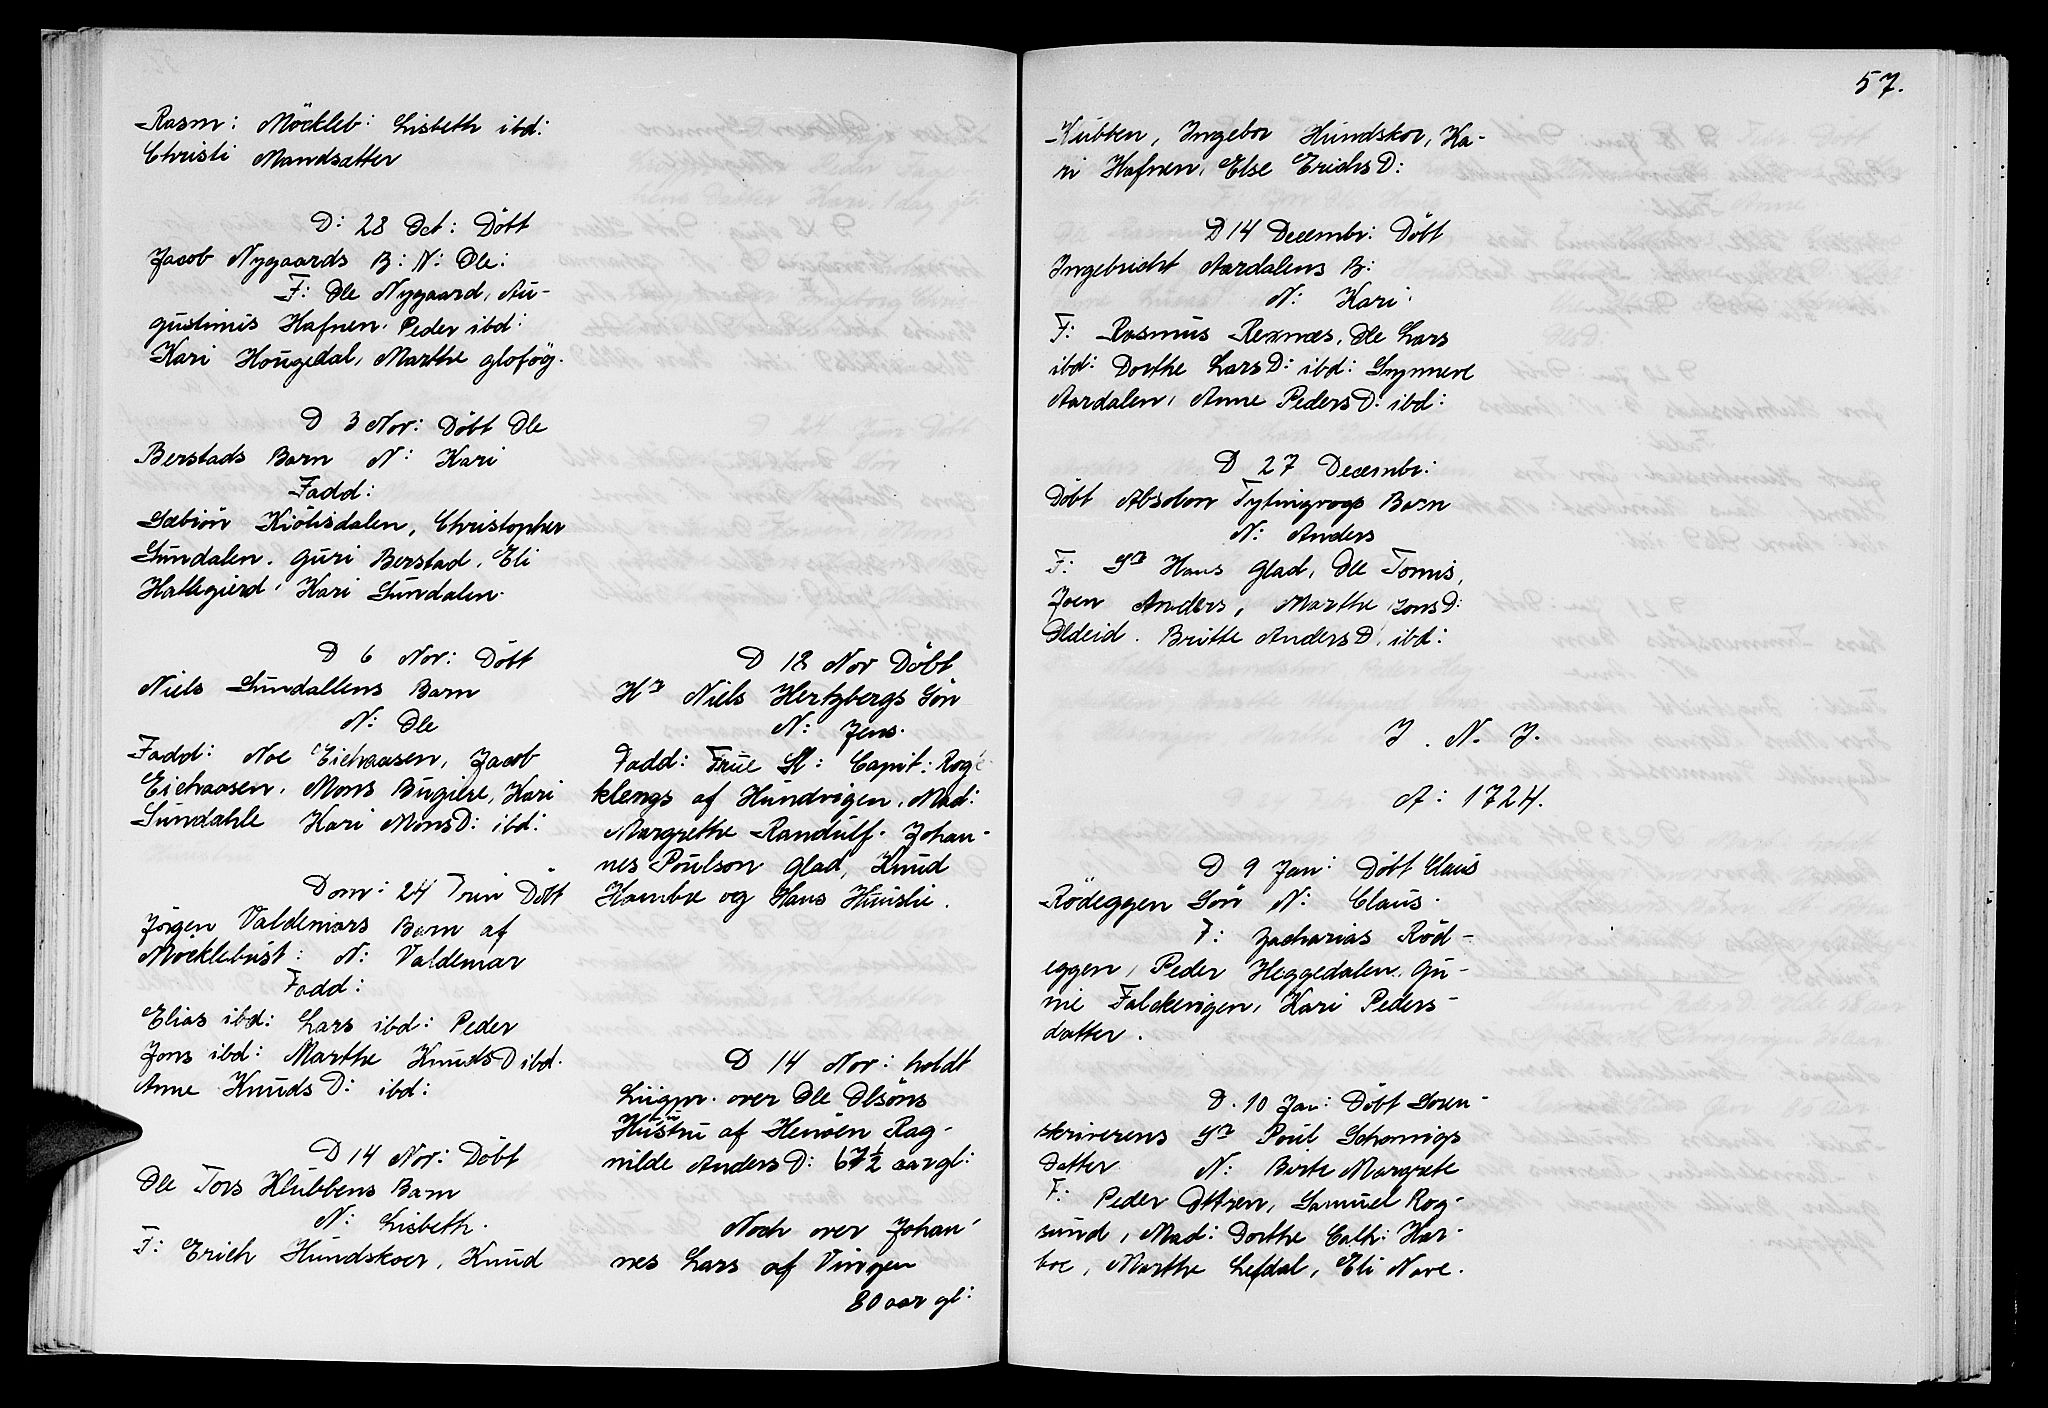 Rasm: Möckleb: Lisbeth ibd:
Christi Mandsætter
D: 28 Oct: Döbt
Jacob Nygaards B: N: Ole:
F: Ole Nygaard, Au-
gustinus Hafnen. Peder ibd:
Kari Hougedal, Marthe glofög.
D 3 Nor: Döbt Ole
Berstads Barn N: Kari
Fadd:
Sæbiön Kiölsdalen, Christopher
Sundalen. Guri Berstad, Eli
Hallegierd, Kari Sundalen.
D 6 Nov: Döbt
Niels Sundallens Barn
N: Ole
Fadd: Noe Eichaasen, Jacob
Eichaasen. Mons Bugiere, Kari
Sundahle Kari MonsD: ibd:
Dom: 24 Trin Döbt
Jörgen Valdemars Barn af
Möcklebust: N: Valdemar
Fadd:
Elias ibd: Lars ibd: Peder
Jons ibd: Marthe KnudsD ibd.
Anne KnudsD: ibd:
D 14 Nov: Döbt
Ole Tors Klubbens Barn
N: Lisbeth.
F: Erich Hundskoer, Knud
D 12 Nov Döbt
Hr Niels Hertzbergs Sön
N: Jens.
Fadd: Frue Sl: Capit: Rog
klengs af Hundvigen, Mad:
Margrethe Randulf. Johan-
nes Poulson Glad, Knud
Hambre og Hans Hunslie.
D 14 Nov: holdt
Liigpr. over Ole Olsöns
Hustru af Henöen Rag-
nilde AndersD: 67½ aar gl:
Noch over Johan-
nes Lars af Vingen
80 aar gl:
57.
Klubben, Ingebor Hundskor, Ka-
ri Hafnen, Else ErichsD:
D 14 Decembr: Döbt
Ingebricht Aardalens B:
N: Kari.
F: Rasmus Rexnæs, Ole Lars
ibd: Dorthe LarsD: ibd: Synneve
Aardalen, Anne PedersD: ibd:
D 27 Decembr:
Döbt Absolon Tytingvogs Barn
N: Anders
F: Sr Hans Glad, Ole Tomis,
Joen Anders, Marthe JonsD:
Oldeid. Britte AndersD. ibd:
J. N. J.
A: 1724.
D 9 Jan: Döbt Claus
Rödeggen Sön N: Claus.
F: Zacharias Röd-
eggen, Peder Heggedalen, Gu-
nie Falckevigen, Kari Peders-
datter.
D. 10 Jan: Döbt Soren-
skriverens Sr Poul Schamigs
Datter N: Birte Margrete
F: Peder Ottzen, Samuel Rog-
sund, Mad: Dorthe Cath: Har-
boe, Marthe Lefdal, Eli Nave.